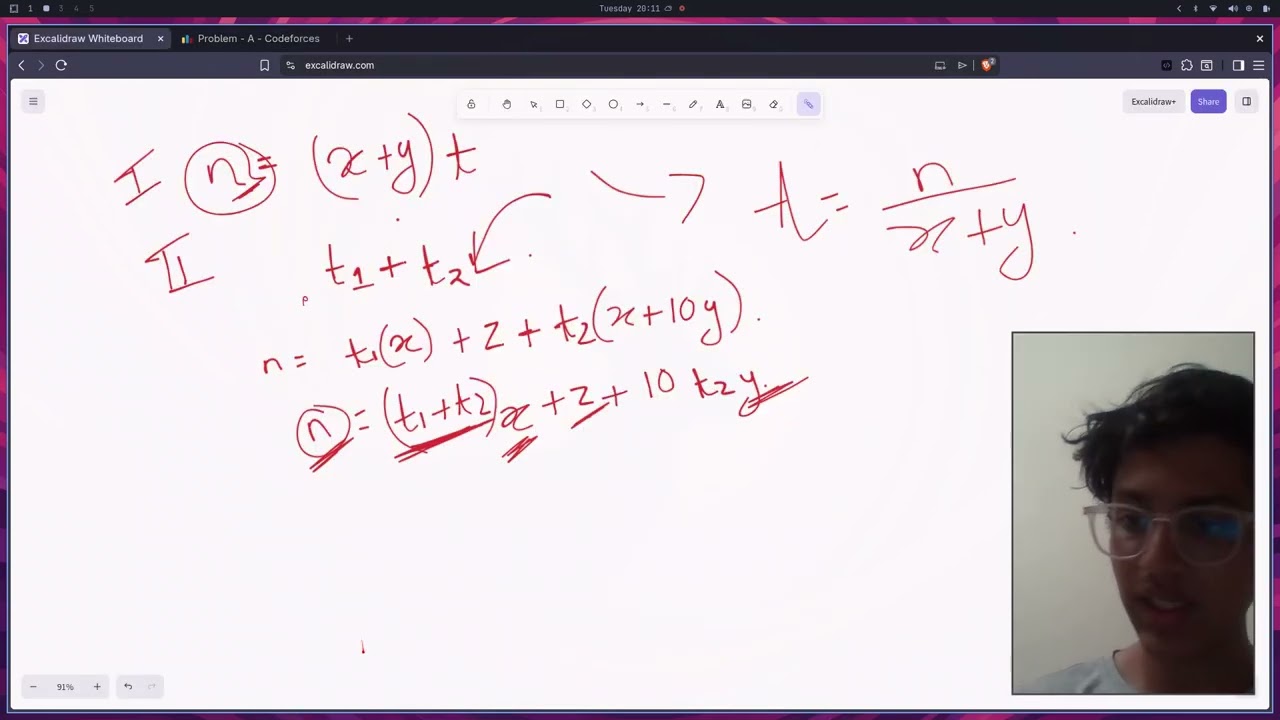 1 3 4 5
Tuesday 20:11
Excalidraw Whiteboard
Problem - A - Codeforces
excalidraw.com
2
Excalidraw+
Share
I n = (x+y) t
t = n/(x+y) .
II t1 + t2
n = t1(x) + z + t2(x+10y) .
n = (t1+t2)x + z + 10 t2 y
91%